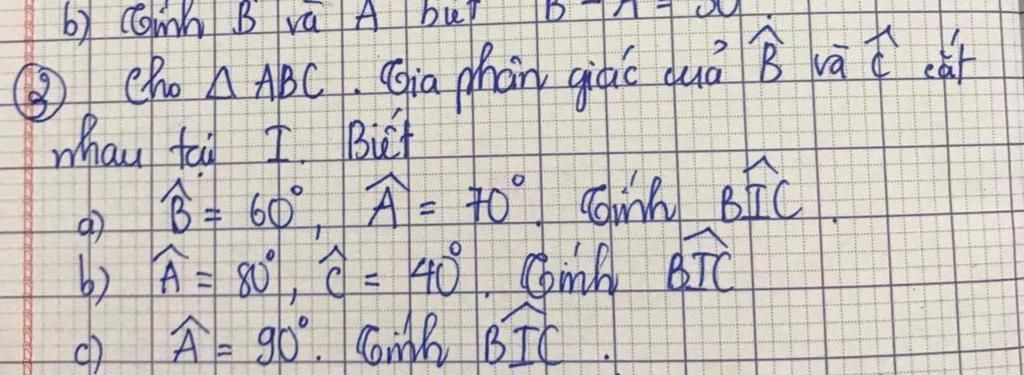 b) Tính B và A biết B - A = 30°.
③ Cho Δ ABC. Tia phân giác của B̂ và Ĉ cắt
nhau tại I. Biết
a) B̂ = 60°, Â = 70°. Tính BÎC.
b) Â = 80°, Ĉ = 40°. Tính BÎC
c) Â = 90°. Tính BÎC.